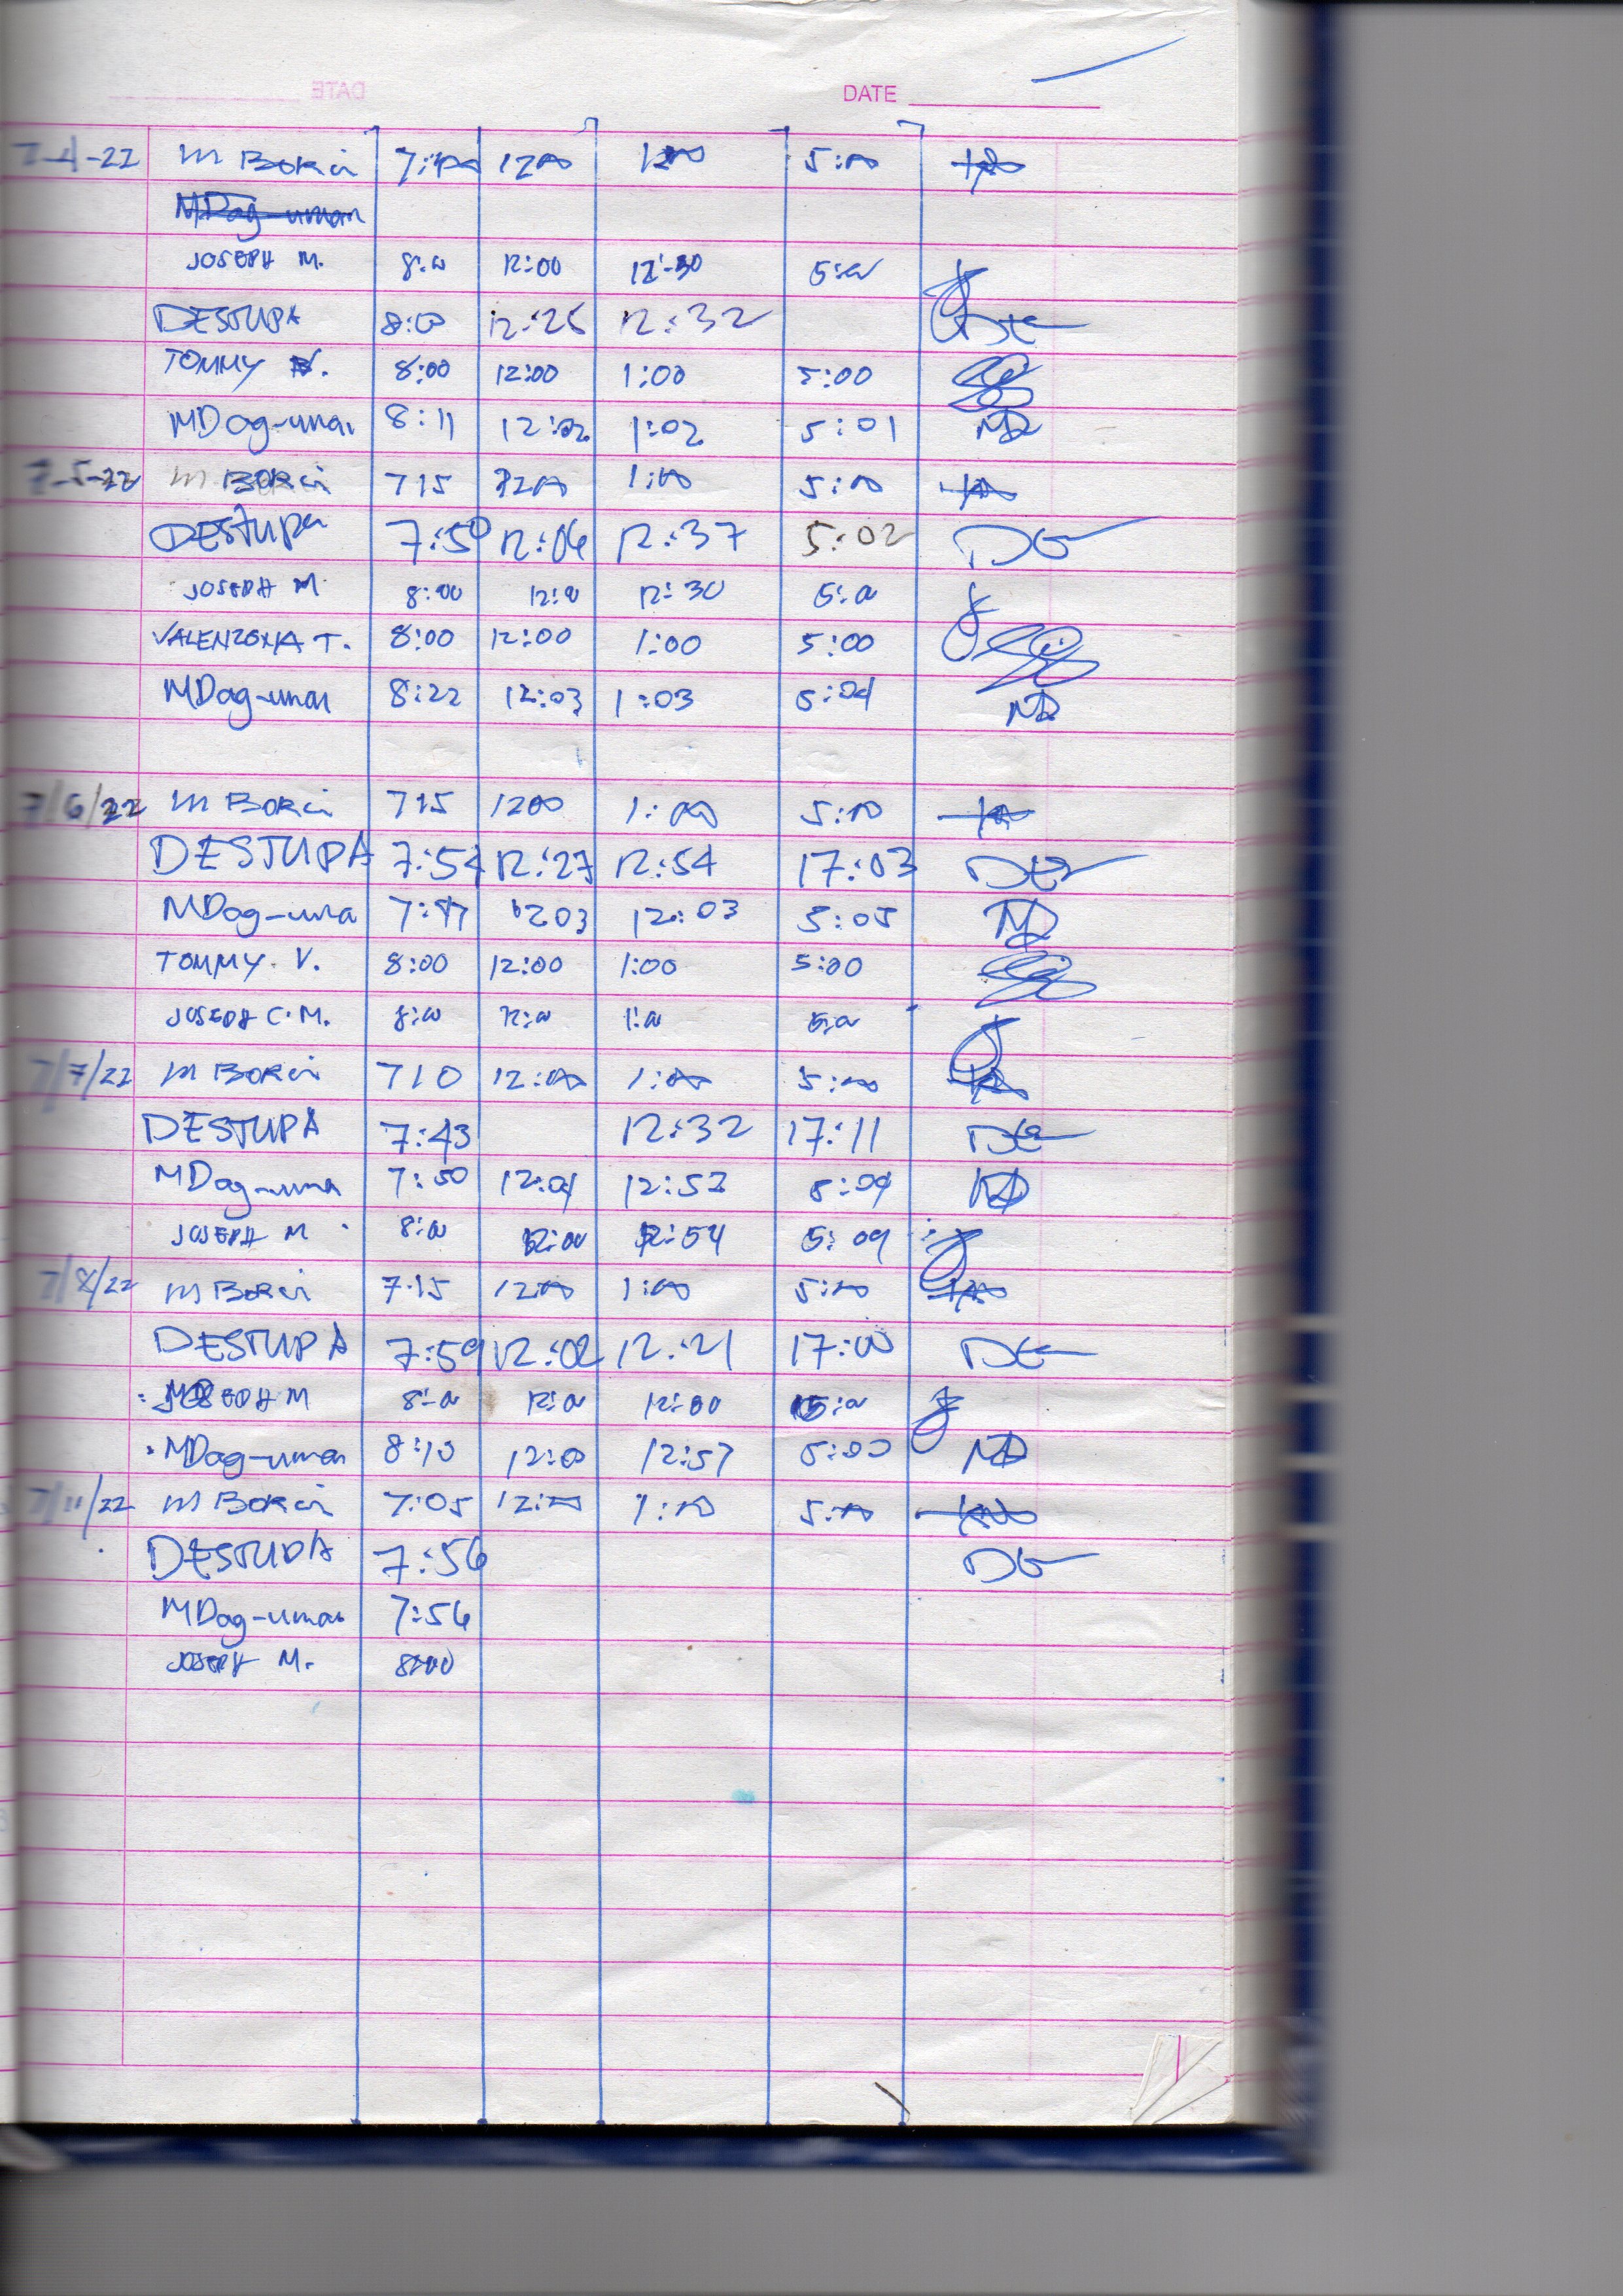 DATE
7-4-22 M 1200 5:00
MDag-uman
JOSEPH M. 8:00 12:00 12:30 5:00
DESTUPA 8:00 12:26 12:32
TOMMY V. 8:00 12:00 1:00 5:00
MDag-uman 8:11 12:02 1:02 5:01 MD
7-5-22 M 715 1200 1:00 5:00
DESTUPA 7:50 12:06 12:37 5:02
JOSEPH M 8:00 12:00 12:30 5:00
VALENZONA T. 8:00 12:00 1:00 5:00
MDag-uman 8:22 12:03 1:03 5:04 MD
7/6/22 M 715 1200 1:00 5:00
DESTUPA 7:54 12:27 12:54 17:03
MDag-uma 7:47 1203 12:03 5:05 MD
TOMMY V. 8:00 12:00 1:00 5:00
JOSEPH C.M. 8:00 12:00 1:00 5:00
7/7/22 M 710 12:00 1:00 5:00
DESTUPA 7:43 12:32 17:11
MDag-uma 7:50 12:04 12:52 MD
JOSEPH M 8:00 12:00 12:54 5:09
7/8/22 M 7:15 12:00 1:00 5:00
DESTUPA 7:59 12:02 12:21 17:00
JOSEPH M 8:00 12:00 5:00
MDag-uman 8:10 12:0 12:57 5:00 MD
7/11/22 M 7:05 12:00 1:00 5:00
DESTUPA 7:56
MDag-uman 7:56
JOSEPH M. 8:00